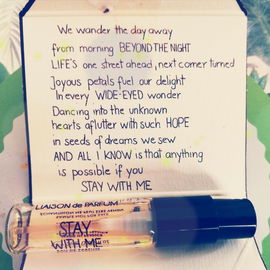 We wander the day away
from morning BEYOND THE NIGHT
LIFE'S one street ahead, next corner turned
Joyous petals fuel our delight
In every WIDE-EYED wonder
Dancing into the unknown
hearts aflutter with such HOPE
in seeds of dreams we sew
AND ALL I KNOW is that anything
is possible if you
STAY WITH ME
LIAISON de PARFUM
STAY
WITH ME